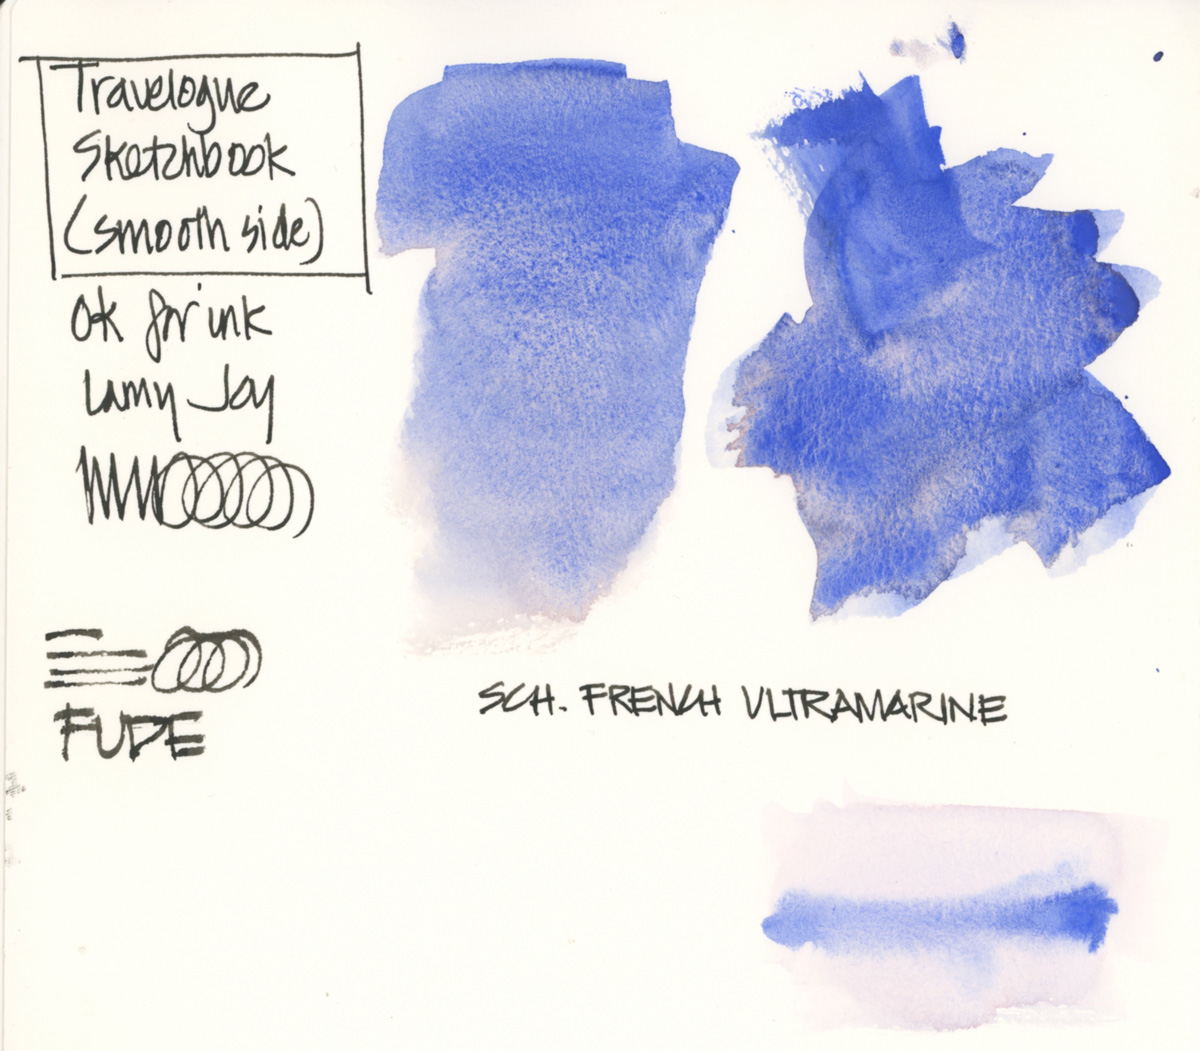 Travelogue
Sketchbook
(smooth side)
Ok for ink
Lamy Joy
FUDE
SCH. FRENCH ULTRAMARINE